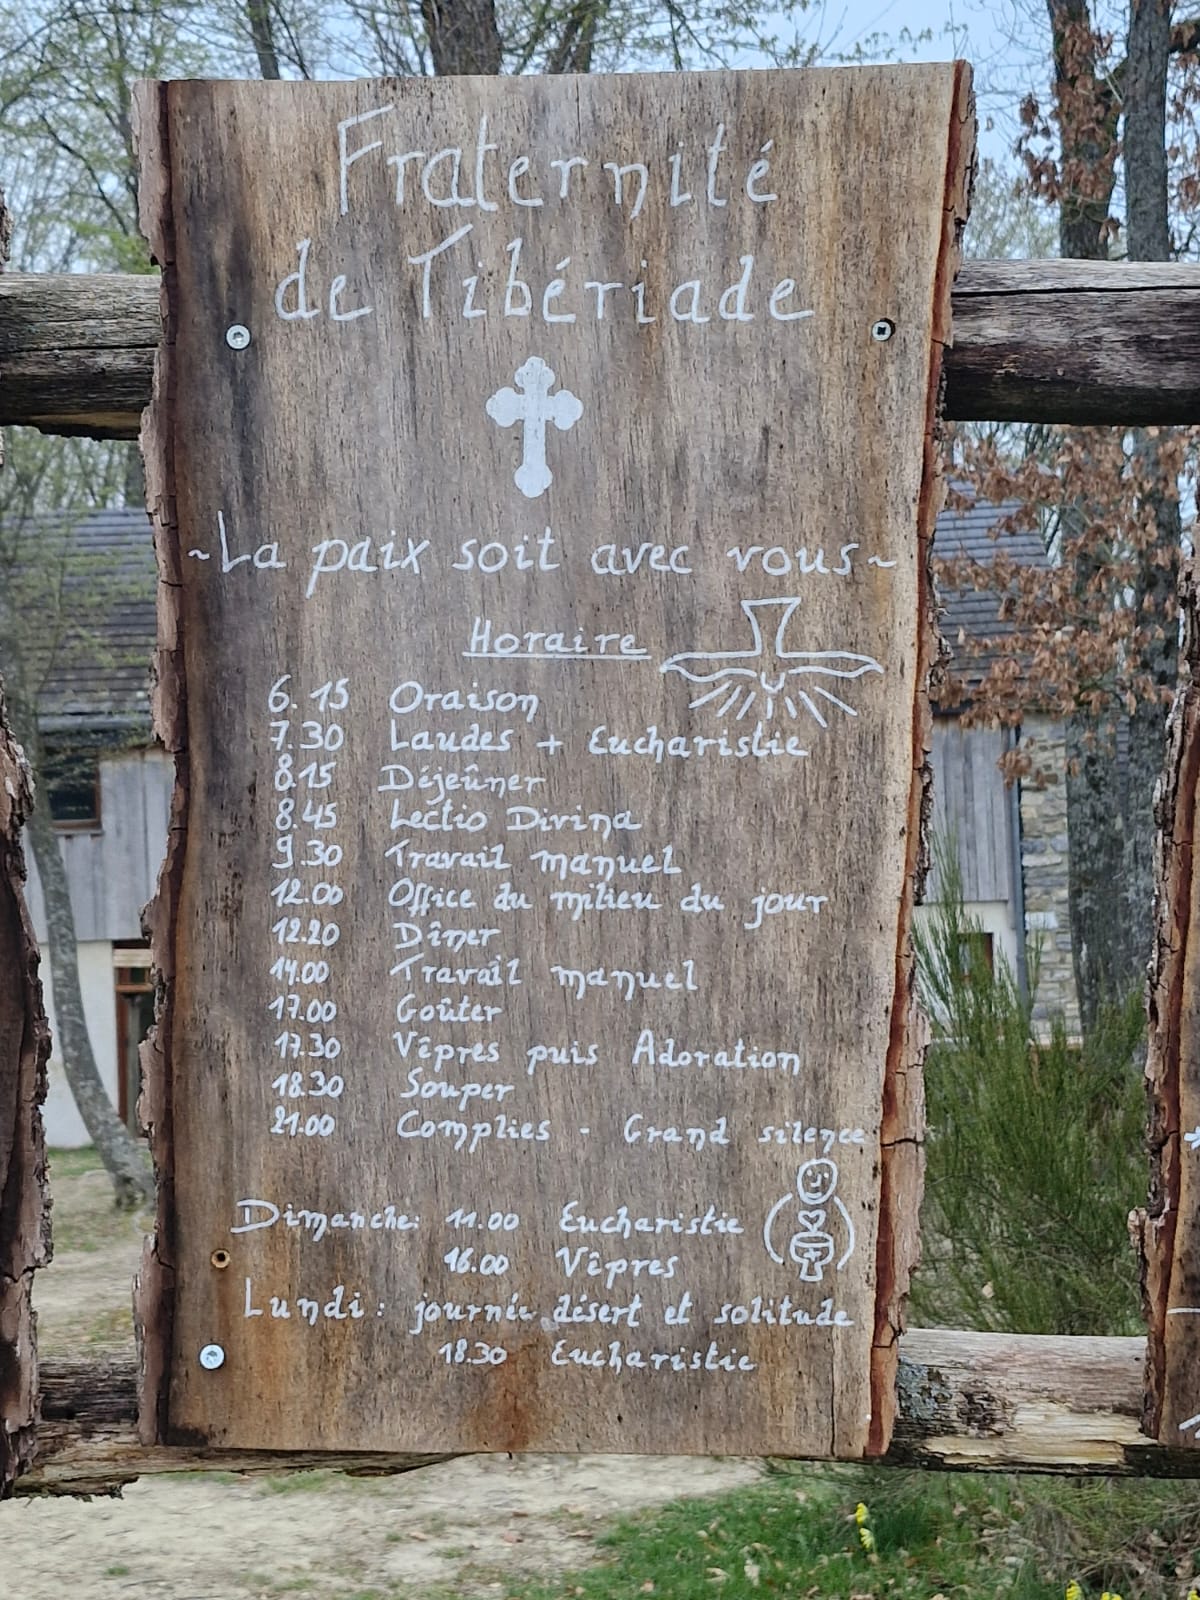 Fraternité
de Tibériade
~La paix soit avec vous~
Horaire
6.15 Oraison
7.30 Laudes + Eucharistie
8.15 Déjeûner
8.45 Lectio Divina
9.30 Travail manuel
12.00 Office du milieu du jour
12.20 Dîner
14.00 Travail manuel
17.00 Goûter
17.30 Vêpres puis Adoration
18.30 Souper
21.00 Complies - Grand silence
Dimanche: 11.00 Eucharistie
16.00 Vêpres
Lundi: journée désert et solitude
18.30 Eucharistie